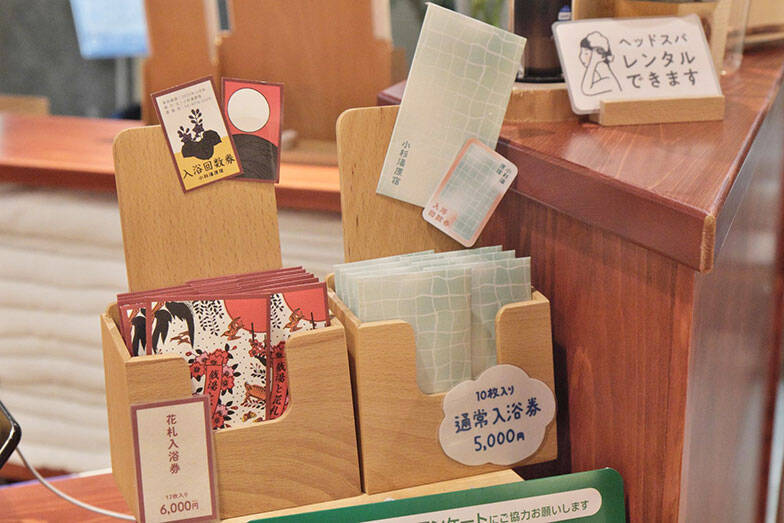 ヘッドスパ
レンタル
できます
入浴回数券
小杉湯原宿
小杉湯原宿
小杉湯
原宿
入浴
回数券
銭湯と花札
銭湯と花札
花札入浴券
12枚入り
6,000円
10枚入り
通常入浴券
5,000円
ンケートにご協力お願いします